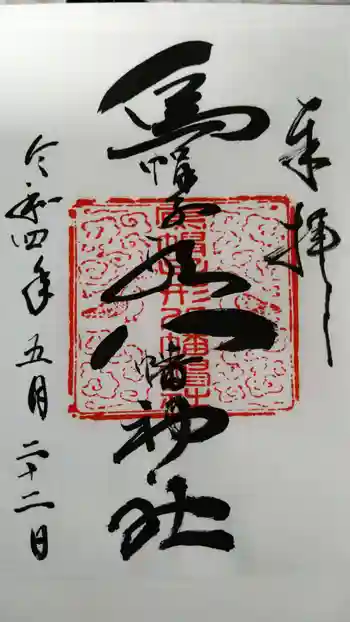 奉拝
烏帽子形八幡神社
令和四年五月二十二日